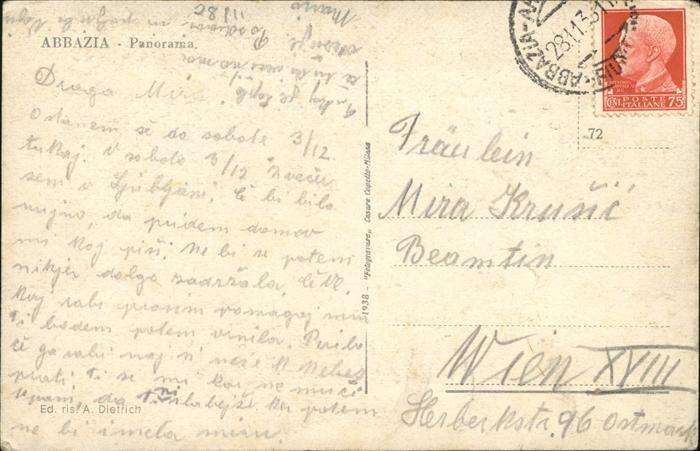 ABBAZIA - Panorama.
Draga Mira!
Ostanem še do sobote 3/12
tukaj. V soboto 3/12 zvečer
sem v Ljubljani. Če bi bilo
nujno, da pridem domov
mi koj piši, ne bi se potem
nikjer dolgo zadržala, če M.
kaj rabi prosim pomagaj mu
Ti bodem potem vrnila. Perilo
če ga rabi naj ji nese
prati. Ti se mi kar ne muči
da si slabejša ker potem
ne bi imela miru.
Tukaj je toplo
Mario
11/8c
Ed. ris. A. Dietrich
1938 - "Fotogravura,, Cesare Capello-Milano
ABBAZIA
28.11.38
POSTE
ITALIANE
CENT. 75
72
Fräulein
Mira Krušič
Beamtin
Wien XVIII
Herbeckstr. 96 Ostmark